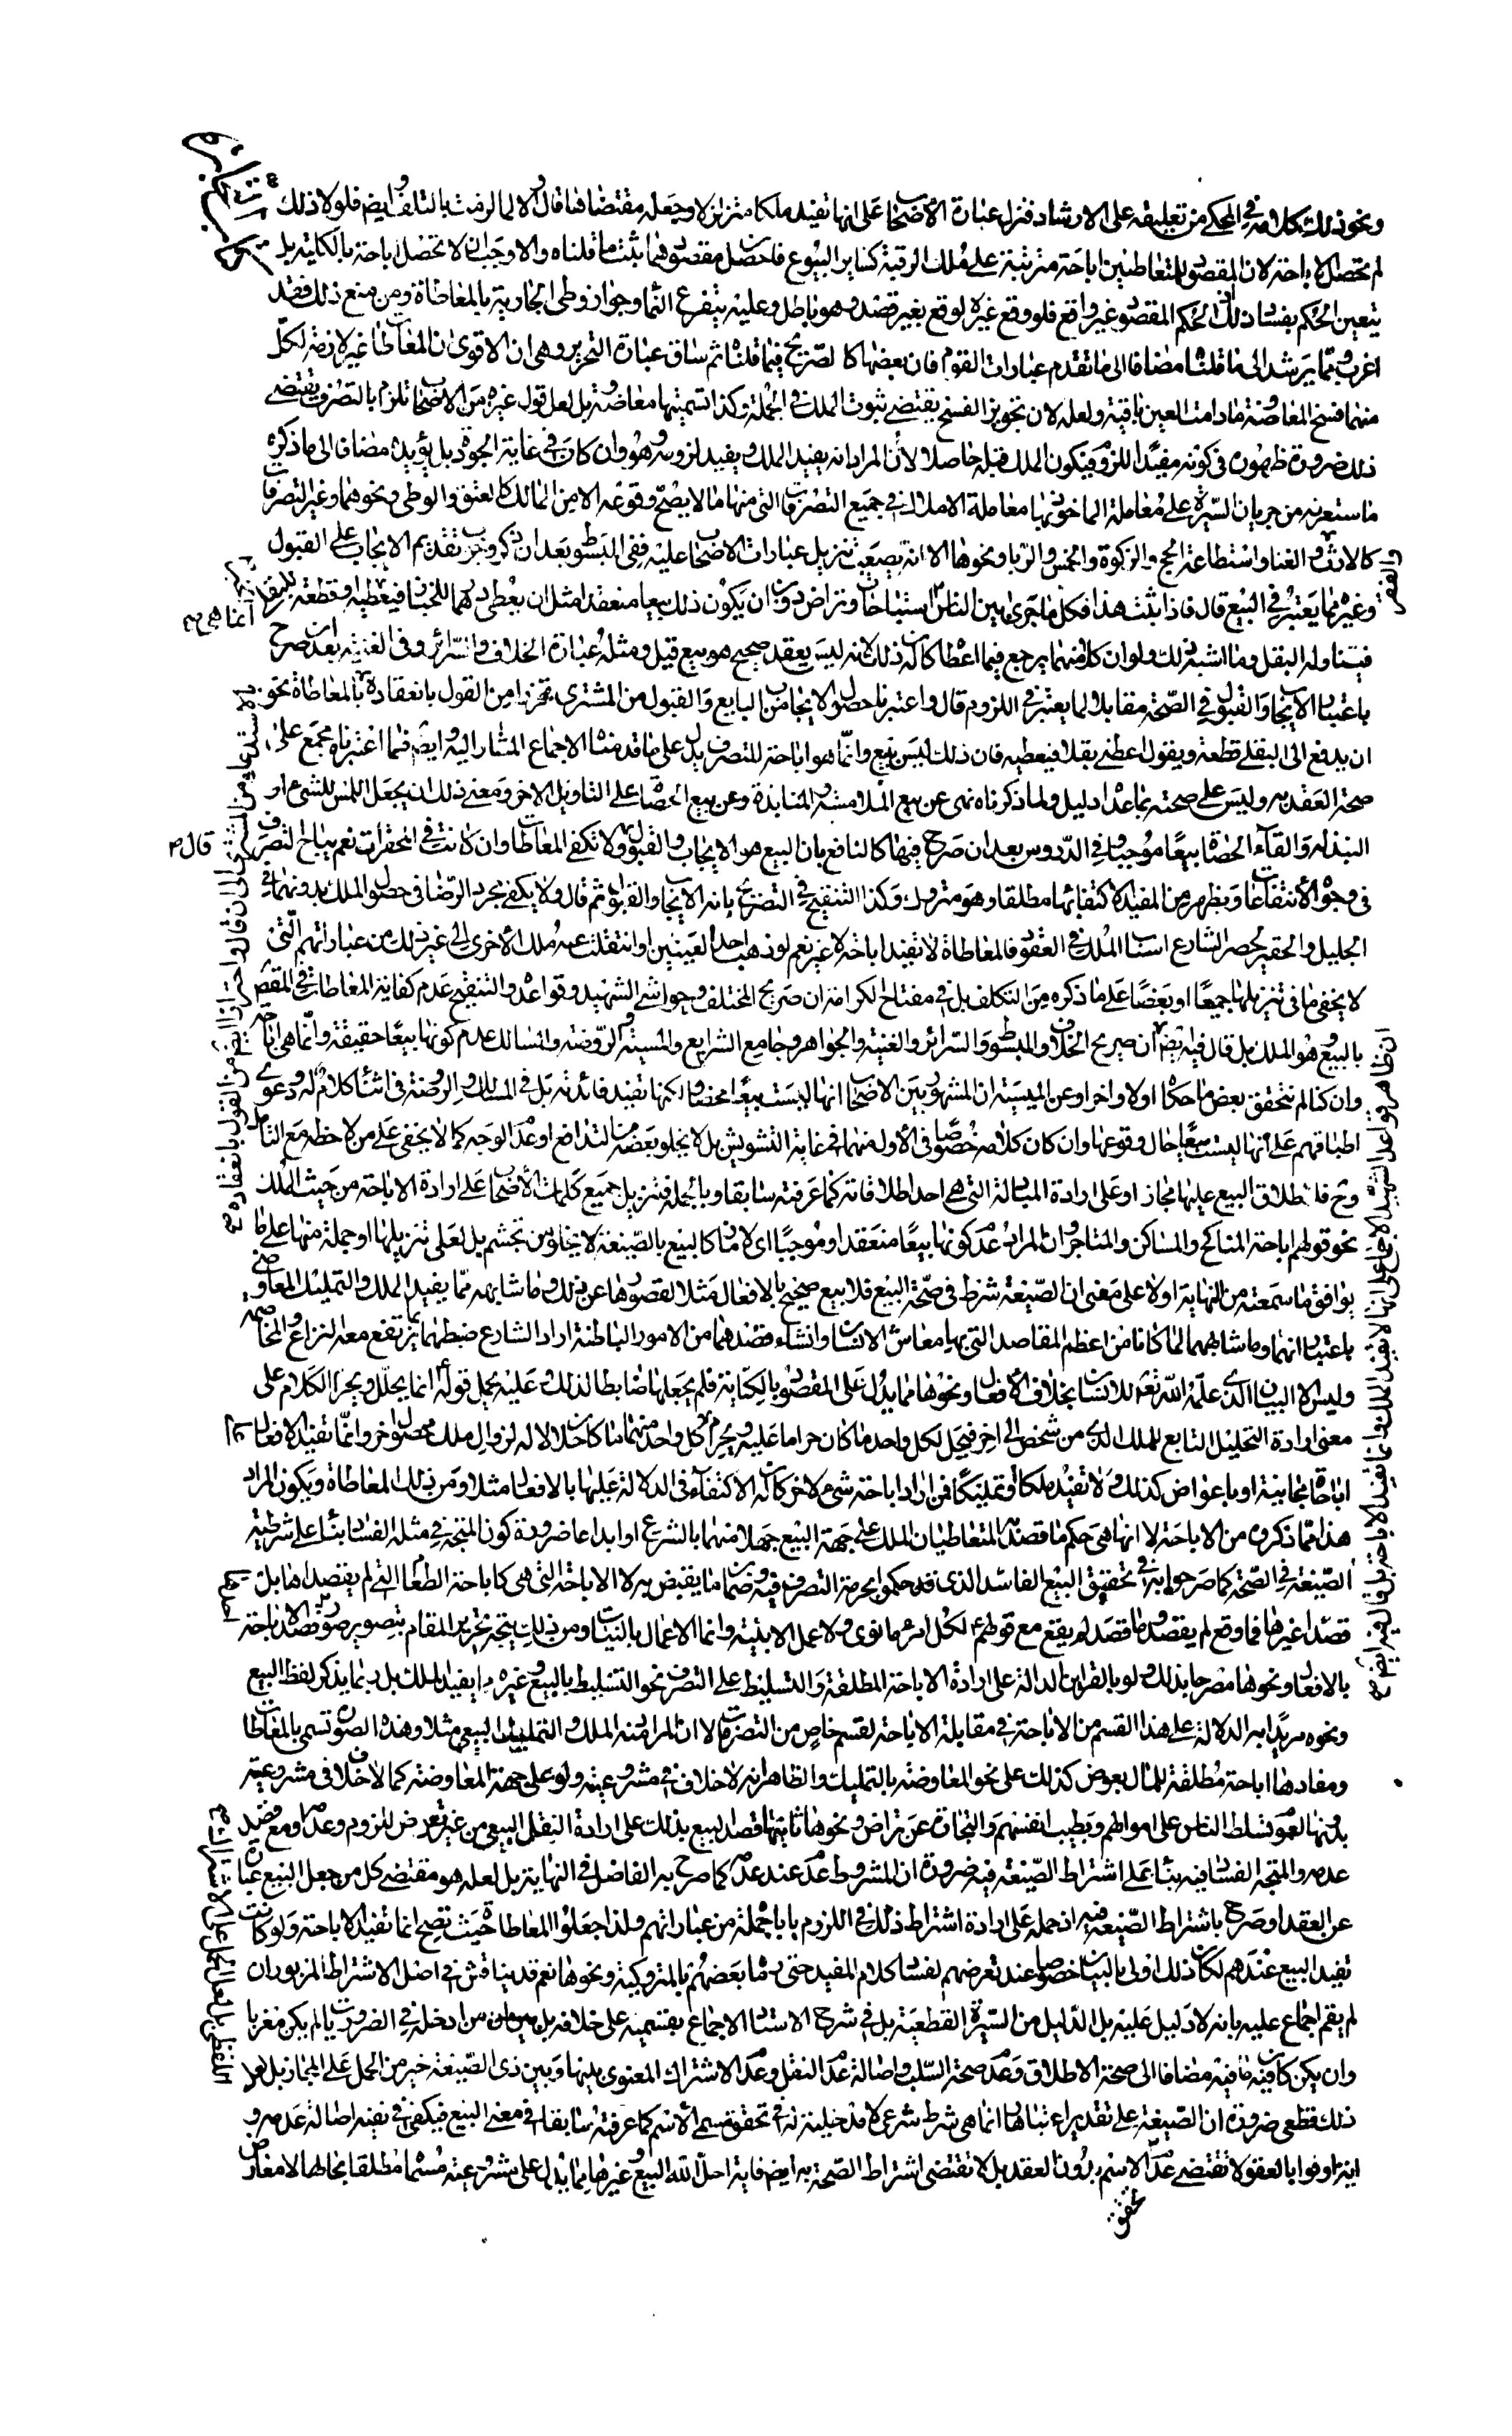 ونحو ذلك كلامه في المحكي من تعليقه على الارشاد فنزل عبارة الأصحاب على انها تفيد ملكا متزلزلا وجعله مقتضا فنا قال والا لما لزمت بالتلف وايضا فلولا ذلك
لم تحصل الاباحة لان المقصود للمتعاطيين اباحة مترتبة على ملك الرقبة كساير البيوع فان حصل مقصودهما ثبت ما قلناه والا وجب ان لا تحصل اباحة بالكلية بل
يتعين الحكم بفساد ذلك اذ الحكم المقصود غير واقع فلو وقع غيره لوقع بغير قصد وهو باطل وعليه يتفرع النما وجواز وطي الجارية بالمعاطاة ومن منع ذلك فقد
اغرب ومما يرشد الى ما قلناه مضافا الى ما تقدم عبارات القوم فان بعضها كالصريح فيما قلناه ثم ساق عبارة التحرير وهي ان الاقوى ان المعاطاة غير لازمة لكل
منهما فسخ المعاوضة ما دامت العين باقية ولعله لان تجويز الفسخ يقتضي ثبوت الملك في الجملة وكذا تسميتها معاوضة بل لعل قول غيره من الاصحاب تلزم بالتصرف يقتضي
ذلك ضرورة ظهوره في كونه مفيدا للزوم فيكون الملك قبله حاصلا لا ان المراد انه يفيد الملك ويفيد لزومه وهو وان كان في غاية الجودة بل يؤيده مضافا الى ما ذكره
ما ستعرفه من جريان السيرة على معاملة الماخوذ بها معاملة الاملاك في جميع التصرفات التي منها ما لا يصح وقوعه الا من المالك كالعتق والوطي ونحوهما وغير التصرفات
كالارث والغنا واستطاعة الحج والزكوة والخمس والربا ونحوها الا انه يصعب تنزيل عبارات الاصحاب عليه ففي المبسوط بعد ان ذكر وجوب تقديم الايجاب على القبول
وغيره مما يعتبر في البيع قال فاذا ثبت هذا فكل ما جرى بين الناس استباحات وتراض دون ان يكون ذلك بيعا منعقدا مثل ان يعطي درهما للخباز فيعطيه او قطعة للبقلي
فيتناوله البقل وما اشبه ذلك ولو ان كلا منهما يرجع فيما اعطاه كان له ذلك لانه ليس بعقد صحيح هو بيع قيل ومثله عبارة الخلاف والسرائر وفي الغنية بعد ان صرح
باعتبار الايجاب والقبول في الصحة مقابلا لما يعتبر في اللزوم قال واعتبرنا حصول الايجاب من البايع والقبول من المشتري تحرزا من القول بانعقاده بالمعاطاة نحو
ان يدفع الى البقلي قطعة ويقول اعطني بقلا فيعطيه فان ذلك ليس ببيع وانما هو اباحة للتصرف يدل على ما قدمناه الاجماع المشار اليه وايضا فما اعتبرناه مجمع على
صحة العقد به وليس على صحته بما عداه دليل ولما ذكرناه نهى عن بيع الملامسة والمنابذة وعن بيع الحصاة على التاويل الاخر ومعنى ذلك ان يجعل اللمس للشيء او
النبذ له والقاء الحصاة بيعا موجبا وفي الدروس بعد ان صرح فيها كالنافع بان البيع هو الايجاب والقبول ولا تكفي المعاطاة وان كانت في المحقرات نعم يباح التصرف
في وجوه الانتفاعات ويظهر من المفيد الاكتفاء بها مطلقا وهو متروك وكذا التنقيح في التصريح بانه الايجاب والقبول ثم قال ولا يكفي مجرد الرضا في حصول الملك بدونهما في
الجليل والحقير لحصر الشارع اسباب الملك في العقود فالمعاطاة لا تفيد اباحة لا غير نعم لو ذهب احد العينين او انتقلت عنه ملك الأخرى الى غير ذلك من عباراتهم التي
لا يخفى ما في تنزيلها جميعا او بعضا على ما ذكره من التكلف بل في مفتاح الكرامة ان صريح المختلف وحواشي الشهيد وقواعده والتنقيح عدم كفاية المعاطات في المقصد
بالبيع وهو الملك بل قال فيه ايضا ان صريح الخلاف والمبسوط والسرائر والغنية والجواهر وجامع الشرايع والميسية والروضة والمسالك عدم كونها بيعا حقيقة وانما هي اباحة
وان كنا لم نتحقق بعض ما حكاه اولا واخرا وعن الميسية ان المشهور بين الاصحاب انها ليست بيعا محضا ولكنها تفيد فائدته بل في المسالك والروضة في اثناء كلام له دعوى
اطباقهم على أنها ليست بيعا حال وقوعها وان كان كلامه خصوصا في الأول منهما في غاية التشويش بل لا يخلو بعضه من التدافع او عدم الوجه كما لا يخفى على من لاحظه مع التامل
وح فاطلاق البيع عليها مجاز او على ارادة المبادلة التي هي احد اطلاقاته كما عرفته سابقا وبالجملة فتنزيل جميع كلمات الأصحاب على ارادة الاباحة من حيث الملك
نحو قولهم اباحة المناكح والمساكن والمتاجر وان المراد عدم كونها بيعا منعقدا وموجبا اي لازما كالبيع بالصيغة لا يخلو من تجشم بل لعل تنزيلها او جملة منها على ما
يوافق ما سمعته من النهاية اولا على معنى ان الصيغة شرط في صحة البيع فلا بيع صحيح بالافعال مثلا لقصورها عن ذلك وما شابهه مما يفيد الملك والتمليك المعاوضي
باعتبار انهما وما شابههما لما كانا من اعظم المقاصد التي بها معاش الانسان وانشاء قصدهما من الامور الباطنة اراد الشارع ضبطهما بما يرتفع معه النزاع والمخاصمة
وليس الا البيان الذي علمه الله تعم للانسان بخلاف الأفعال ونحوها مما يدل على المقصود بالكناية فلم يجعلها ضابطا لذلك عليه يحمل قوله انما يحلل ويحرم الكلام على
معنى ارادة التحليل التابع للملك الذي من شخص الى اخر فيحل لكل واحد ما كان حراما عليه ويحرم كل واحد منهما ما كان حلالا له لزوال ملك وحصول اخر وانما تفيد الافعال
اباحة مجانية او باعواض كذلك ولا تفيد ملكا وتمليكا فمن اراد اباحة شيء لاخر كان له الاكتفاء في الدلالة عليها بالافعال مثلا ومن ذلك المعاطاة ويكون المراد
هذا مما ذكروه من الاباحة لا انها هي حكم ما قصد به المتعاطيان الملك على جهة البيع جهلا منهما بالشرع او ابداعا ضرورة كون المتجه في مثله الفساد بناء على شرطية
الصيغة في الصحة كما صرحوا به في تحقيق البيع الفاسد الذي قد حكموا بحرمة التصرف فيه وضمان ما يقبض به لا الاباحة التي هي كاباحة الطعام التي لم يقصداها بل
قصدا غيرها فما وقع لم يقصد وما قصد لم يقع مع قولهم لكل امرء ما نوى ولا عمل الا بنية وانما الاعمال بالنيات ومن ذلك يتجه تحرير المقام بتصوير صور قصد الاباحة
بالافعال ونحوها مصرحا بذلك ولو بالقراين الدالة على ارادة الاباحة المطلقة والتسليط على التصرف نحو التسليط بالبيع وغيره مما يفيد الملك بل ربما يذكر لفظ البيع
ونحوه مريدا به الدلالة على هذا القسم من الاباحة في مقابلة الاباحة لقسم خاص من التصرفات لا ان المراد منه الملك والتمليك البيعي مثلا وهذه الصورة تسمى بالمعاطاة
ومفادها اباحة مطلقة للمال بعوض كذلك على نحو المعاوضة بالتمليك والظاهر انه لا خلاف في مشروعيته ولو على جهة المعاوضة كما لا خلاف في مشروعيته
بدونها لعموم تسلط الناس على اموالهم وبطيب انفسهم والتجارة عن تراض ونحوها ثانيتها قصد البيع بذلك على ارادة النقل البيعي من غير تعرض للزوم وعدمه او مع قصد
عدمه والمتجه الفساد فيه بناء على اشتراط الصيغة فيه ضرورة ان المشروط عدم عند عدمه كما صرح به الفاضل في النهاية بل لعله هو مقتضى كل من جعل البيع عبارة
عن العقد او صرح باشتراط الصيغة فيه اذ حمله على ارادة اشتراط ذلك في اللزوم ياباه جملة من عباراتهم ولذا جعلوا المعاطاة حيث تصح انما تفيد الاباحة ولو كانت
تفيد البيع عندهم لكان ذلك اولى بالبيان خصوصا عند تعرضهم لفساد كلام المفيد حتى رماه بعضهم بالمتروكية ونحوها نعم قد يناقش في اصل الاشتراط المزبور ان
لم يقم اجماع عليه بانه لا دليل عليه بل الدليل من السيرة القطعية بل في شرح الاستاد الاجماع بقسميه على خلافه بل من ادخله في الضروريات لم يكن مغربا
وان يكن كان فيه ما فيه مضافا الى صحة الاطلاق وعدم صحة السلب واصالة عدم النقل وعدم الاشتراك المعنوي بينها وبين ذي الصيغة خير من الحمل على المجاز بل لعل
ذلك قطعي ضرورة ان الصيغة على تقدير اعتبارها انما هي شرط شرعي لا مدخلية له في تحقق مسمى الأسم كما عرفته سابقا في معنى البيع فيكفي في نفيه اصالة عدمه و
اية اوفوا بالعقود لا تقتضي عدم الاسم بدون العقد بل لا تقتضي اشتراط الصحة به ايضا فاية احل الله البيع وغيرها مما يدل على مشروعيته مسمىا مطلقا بحالها لا معارض
تحقق
والفقر
قال م